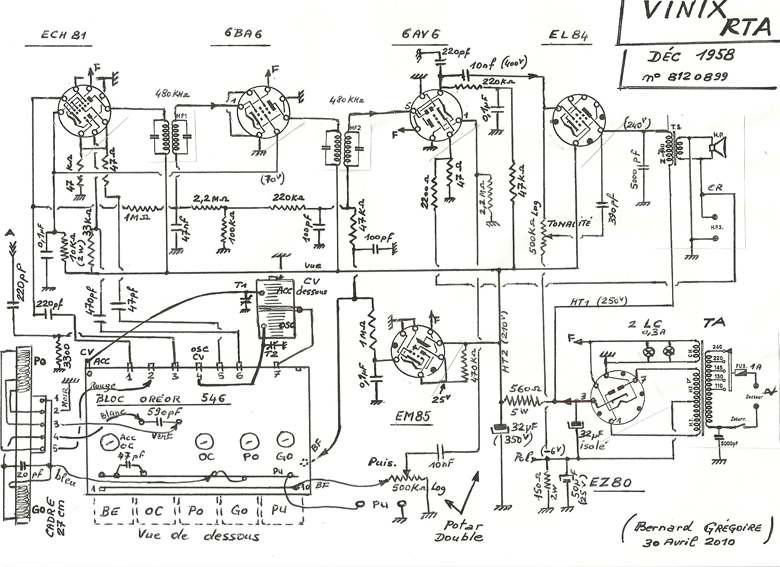 VINIX
RTA
DÉC 1958
n° 8120899
ECH 81
6BA6
6AV6
EL84
F
F
220pf
10nf (400V)
220KΩ
0,1µF
480KHz
MF1
1
480KHz
MF2
5
1
F
(240V)
TS
Z=700
H.P.
5000pf
CR
H.P.S.
47KΩ
47Ω
(70V)
2200Ω
47Ω
2,2MΩ
47KΩ
500KΩ Log
TONALITÉ
390pf
1MΩ
2,2MΩ
220KΩ
47nf
100KΩ
100pf
47KΩ
100pf
A
0,1µf
10KΩ
(2W)
33KΩ
vue
dessous
220pf
220pf
470pf
47pf
T1
ACC
CV
OSC
T2
3300
HT1 (250V)
HT2 (210V)
1MΩ
0,1µf
F
EM85
25V
470KΩ
560Ω
5W
32µF
350V
32µF
isolé
2 LC
0,3A
TA
F
7
3
1
240
220
145
130
110
FUS. 1A
Secteur
Interr.
5000pf
CV
ACC
OSC
CV
1
2
3
4
5
6
7
Po
NOIR
Rouge
BLOC ORÉOR 546
Blanc
590pf
Vert
1
2
3
4
5
Acc
OC
47pf
OC
PO
GO
BF
P4
1
10
BF
20pf
bleu
GO
CADRE
27 cm
BE
OC
Po
Go
P4
Vue de dessous
Puis.
500KΩ Log
P4
10nf
Potar
Double
Pol
(-6V)
150Ω
2W
50µF
(25V)
EZ80
(Bernard GRÉGOIRE)
30 Avril 2010